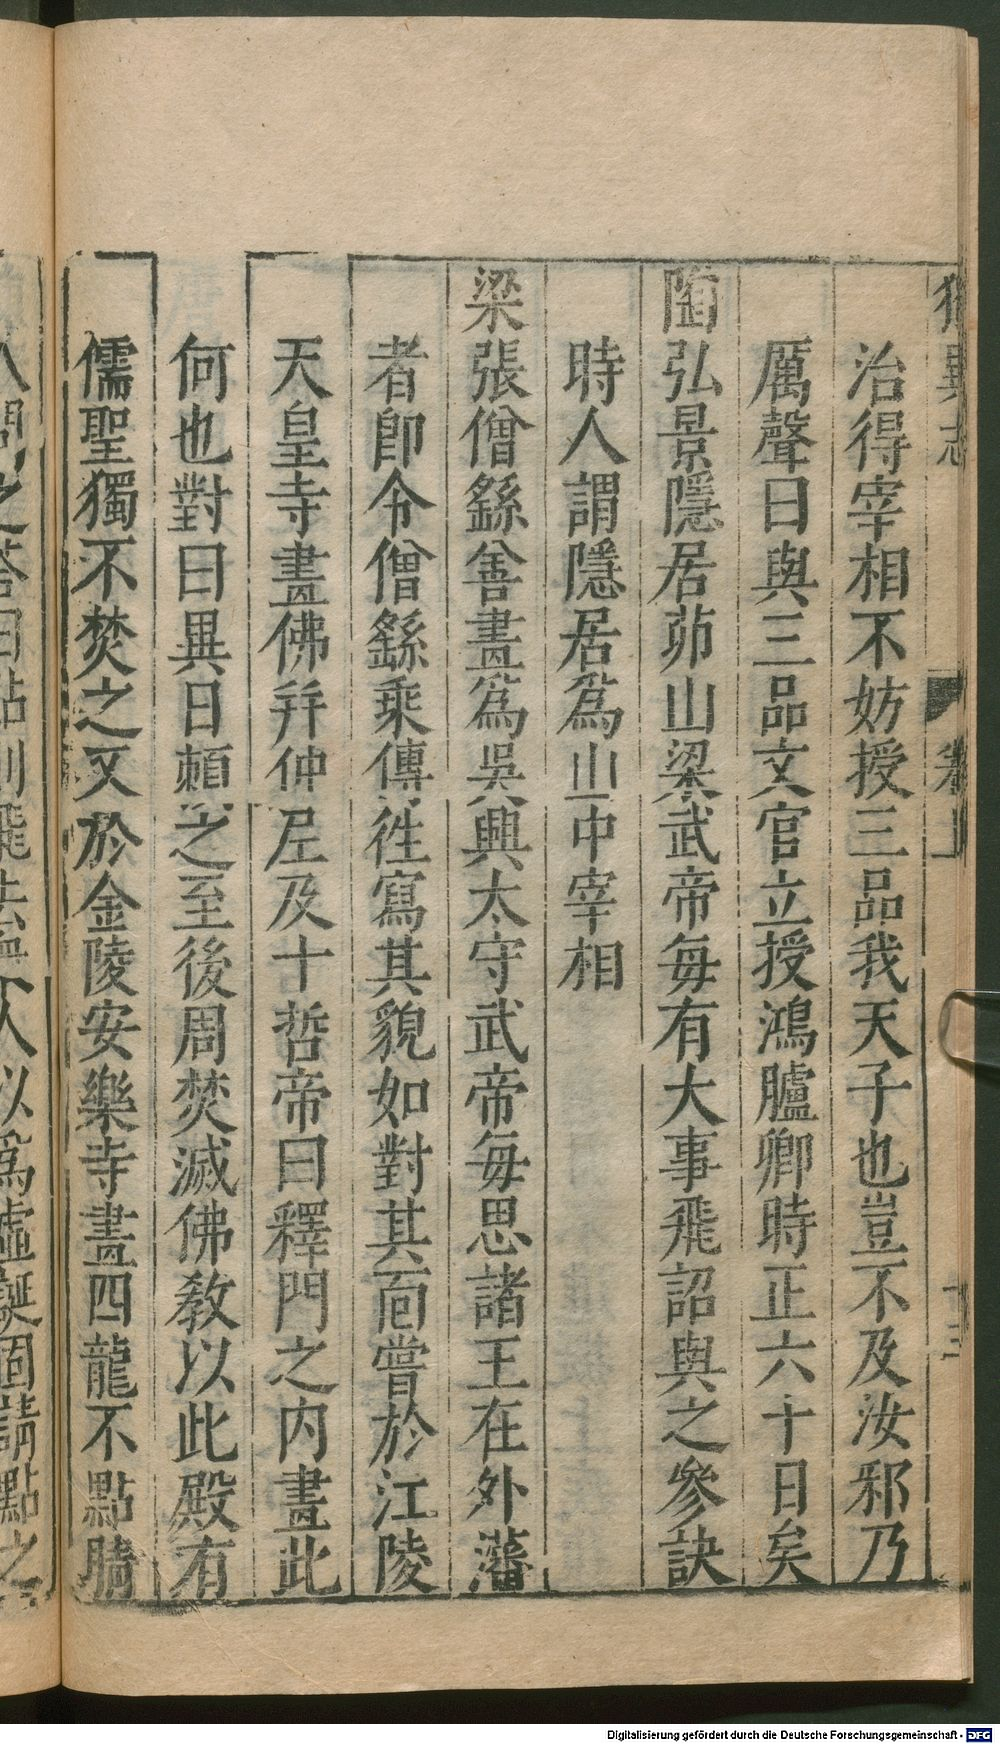 獨異志 卷上 十三
治得宰相不妨授三品我天子也豈不及汝邪乃
厲聲曰與三品文官立授鴻臚卿時正六十日矣
陶弘景隱居茆山梁武帝每有大事飛詔與之參訣
時人謂隱居爲山中宰相
梁張僧繇善畫爲吳興太守武帝每思諸王在外藩
者卽令僧繇乘傳徃寫其貌如對其面嘗於江陵
天皇寺畫佛幷仲尼及十哲帝曰釋門之內畫此
何也對曰異日賴之至後周焚滅佛教以此殿有
儒聖獨不焚之又於金陵安樂寺畫四龍不點睛
人問之答曰點則飛去人以爲虛誕固請點之
Digitalisierung gefördert durch die Deutsche Forschungsgemeinschaft - DFG